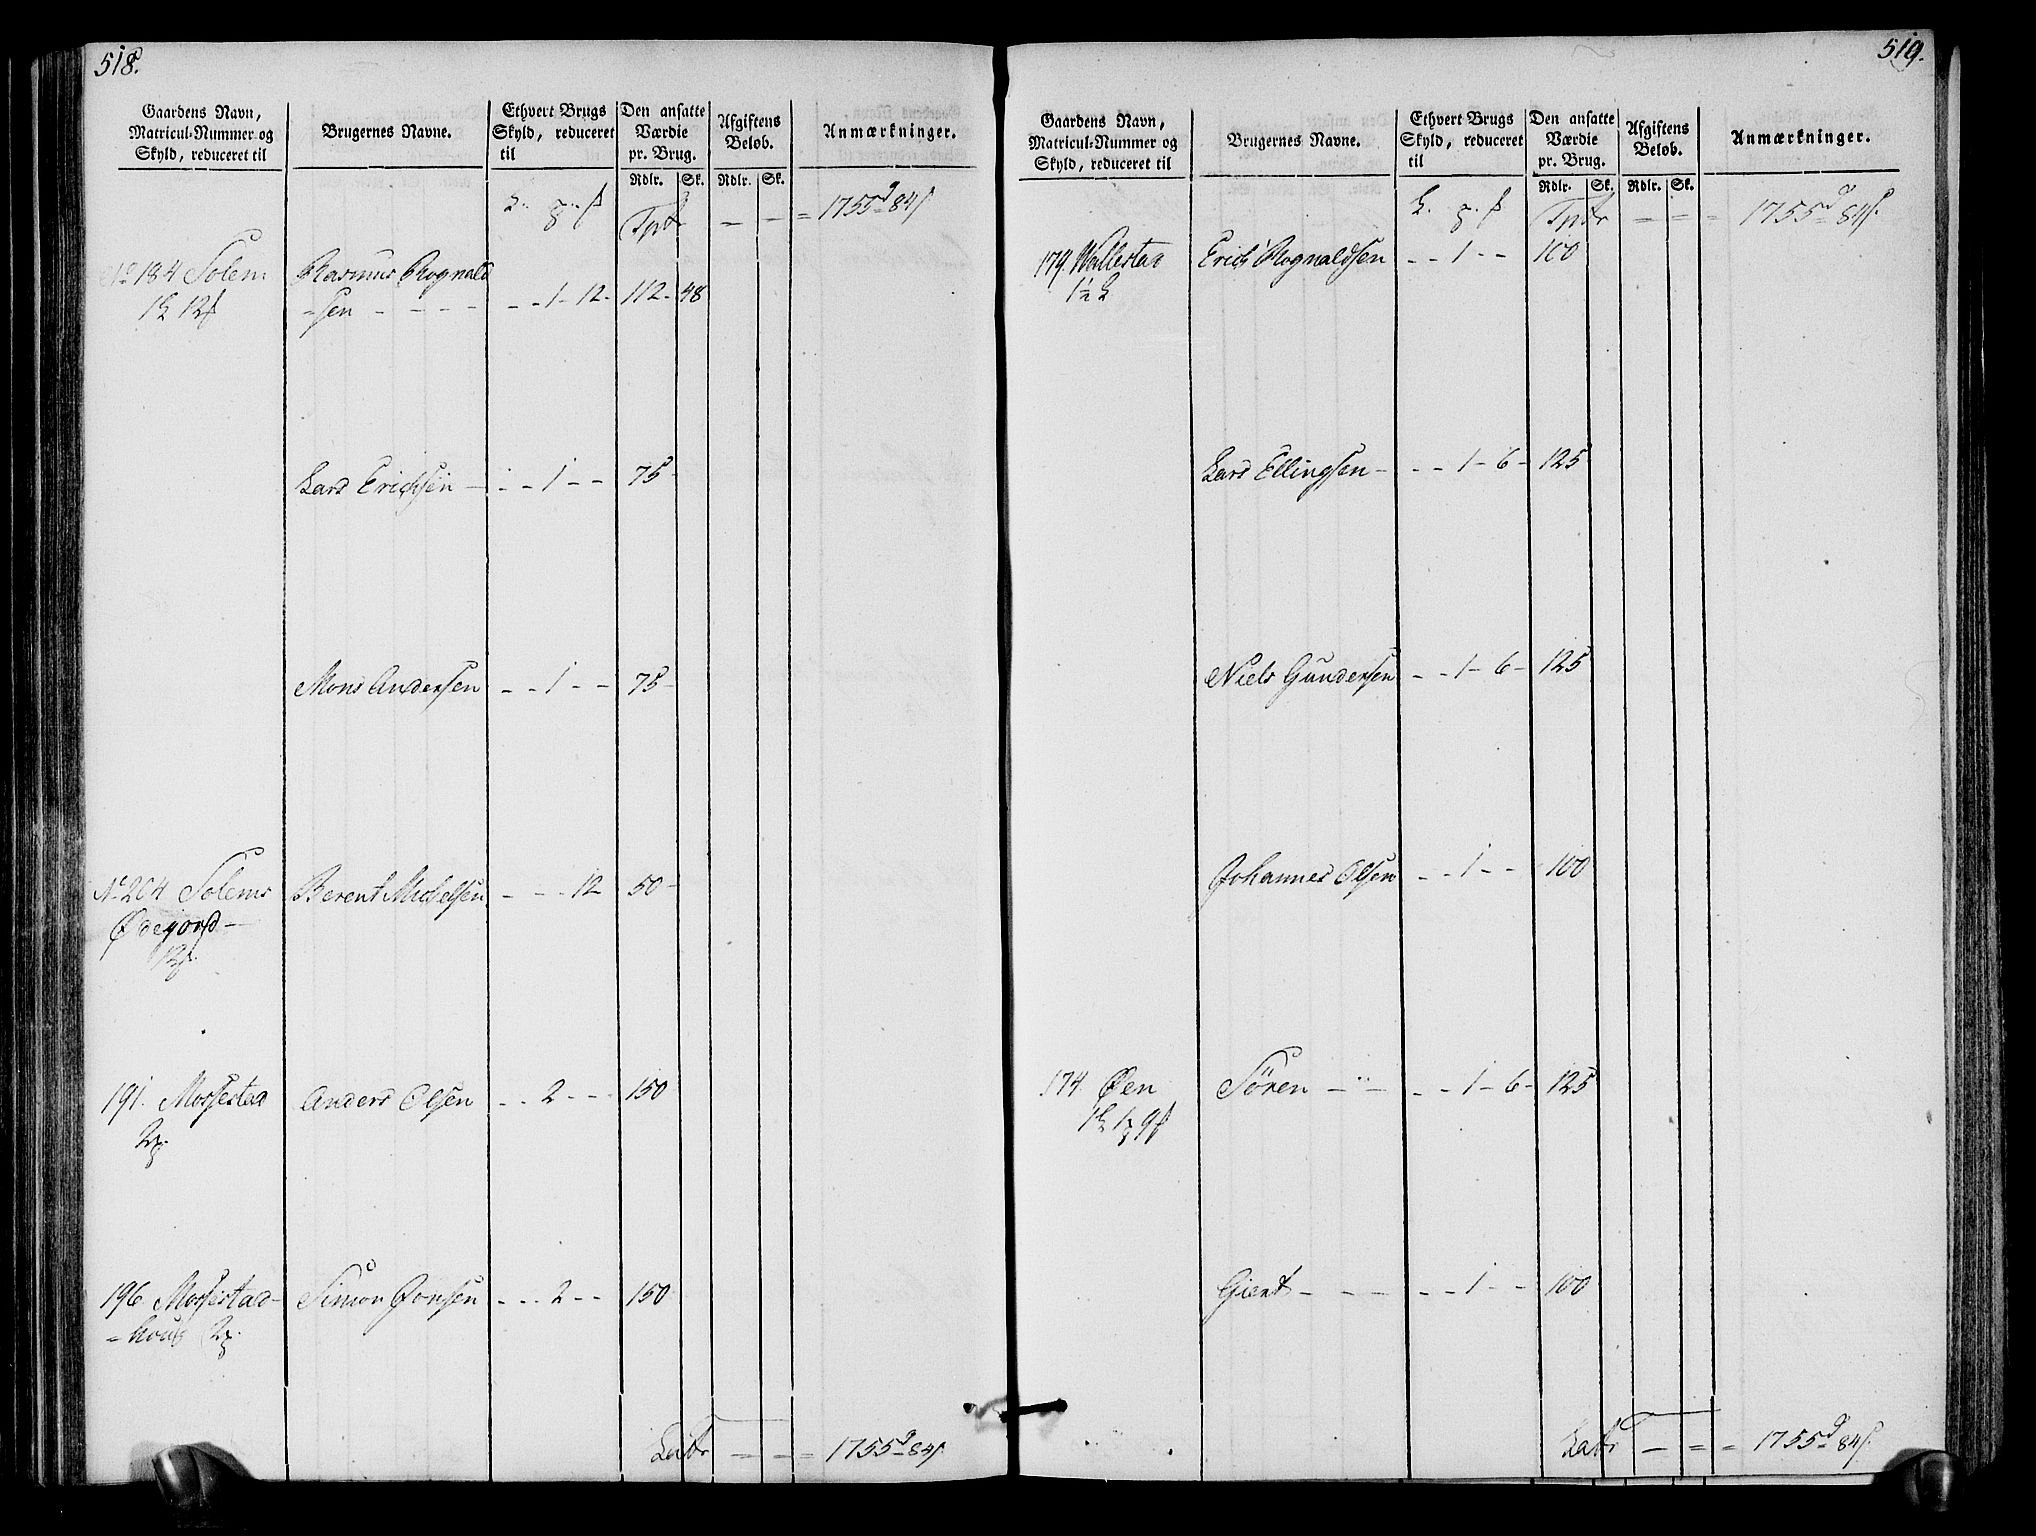 518.
Gaardens Navn,
Matricul-Nummer og
Skyld, reduceret til
Brugernes Navne.
Ethvert Brugs
Skyld, reduceret
til
Den ansatte
Værdie
pr. Brug.
Afgiftens
Beløb.
Anmærkninger.
Rdlr. Sk. Rdlr. Sk.
Tptr — — = 1755 d 84 s
No 184 Solem Rasmus Rognald
-sen - - - - - - 1 - 12 - 112 - 48
12 s
Lars Erichsen - - - 1 - - 75 -
Mons Andersen - - 1 - - 75 -
No 204 Solems Berent Michelsen - - - 12 50 -
Ødegord -
12 s.
191. Mossestad Anders Olsen - - 2 - - - 150
2
196 Mossestad- Simon Jonsen - - - 2 - - 150
= houg 2
Latr — — = 1755 d 84 s
519.
Gaardens Navn,
Matricul-Nummer og
Skyld, reduceret til
Brugernes Navne.
Ethvert Brugs
Skyld, reduceret
til
Den ansatte
Værdie
pr. Brug.
Afgiftens
Beløb.
Anmærkninger.
Rdlr. Sk. Rdlr. Sk.
Tptr — = = 1755 d 84 s.
179. Wallestad Erich Rognaldsen - - 1 - - 100
1½
Lars Ellingsen - - - 1 - 6 - 125
Niels Gundersen - - 1 - 6 - 125
Johannes Olsen - - 1 - - 100
174. Øen Sören - - - - 1 - 6 - 125
1 1 9 s
Giert - - - - - 1 - - 100
Latr — = = 1755 d 84 s.